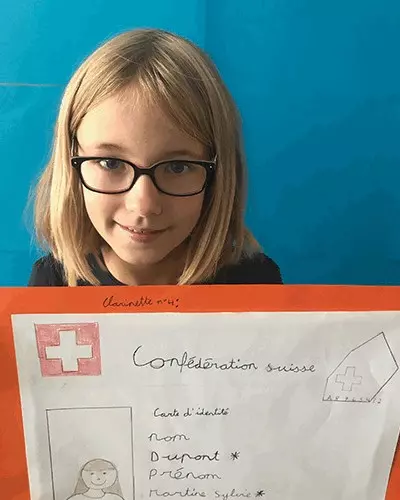 Clarinette n°4:
Confédération suisse
Carte d'identité
nom
Dupont *
Prénom
Martine Sylvie *